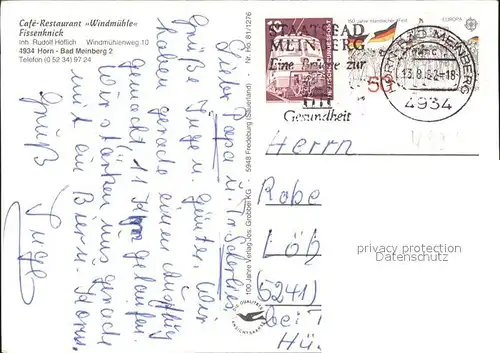 Café-Restaurant »Windmühle«
Fissenknick
Inh. Rudolf Höflich Windmühlenweg 10
4934 Horn - Bad Meinberg 2
Telefon (0 52 34) 97 24
Lieber Papa u.
Grüß Inge u. Günter. Wir
haben gerade einen Ausflug
gemacht 11 km gelaufen.
Wir stärken uns gerade
mit ein Bier u.
Gruß
Inge
100 Jahre Verlag Jos. Grobbel KG · 5948 Fredeburg (Sauerland) · Nr. 81/1276
STAATSBAD
MEINBERG
Eine Brücke zur
Gesundheit
EUROPA
50
BAD MEINBERG
13.8.82-18
4934
Herrn
Robe
Löh
(5241)
bei
Hü
privacy protection
watermark